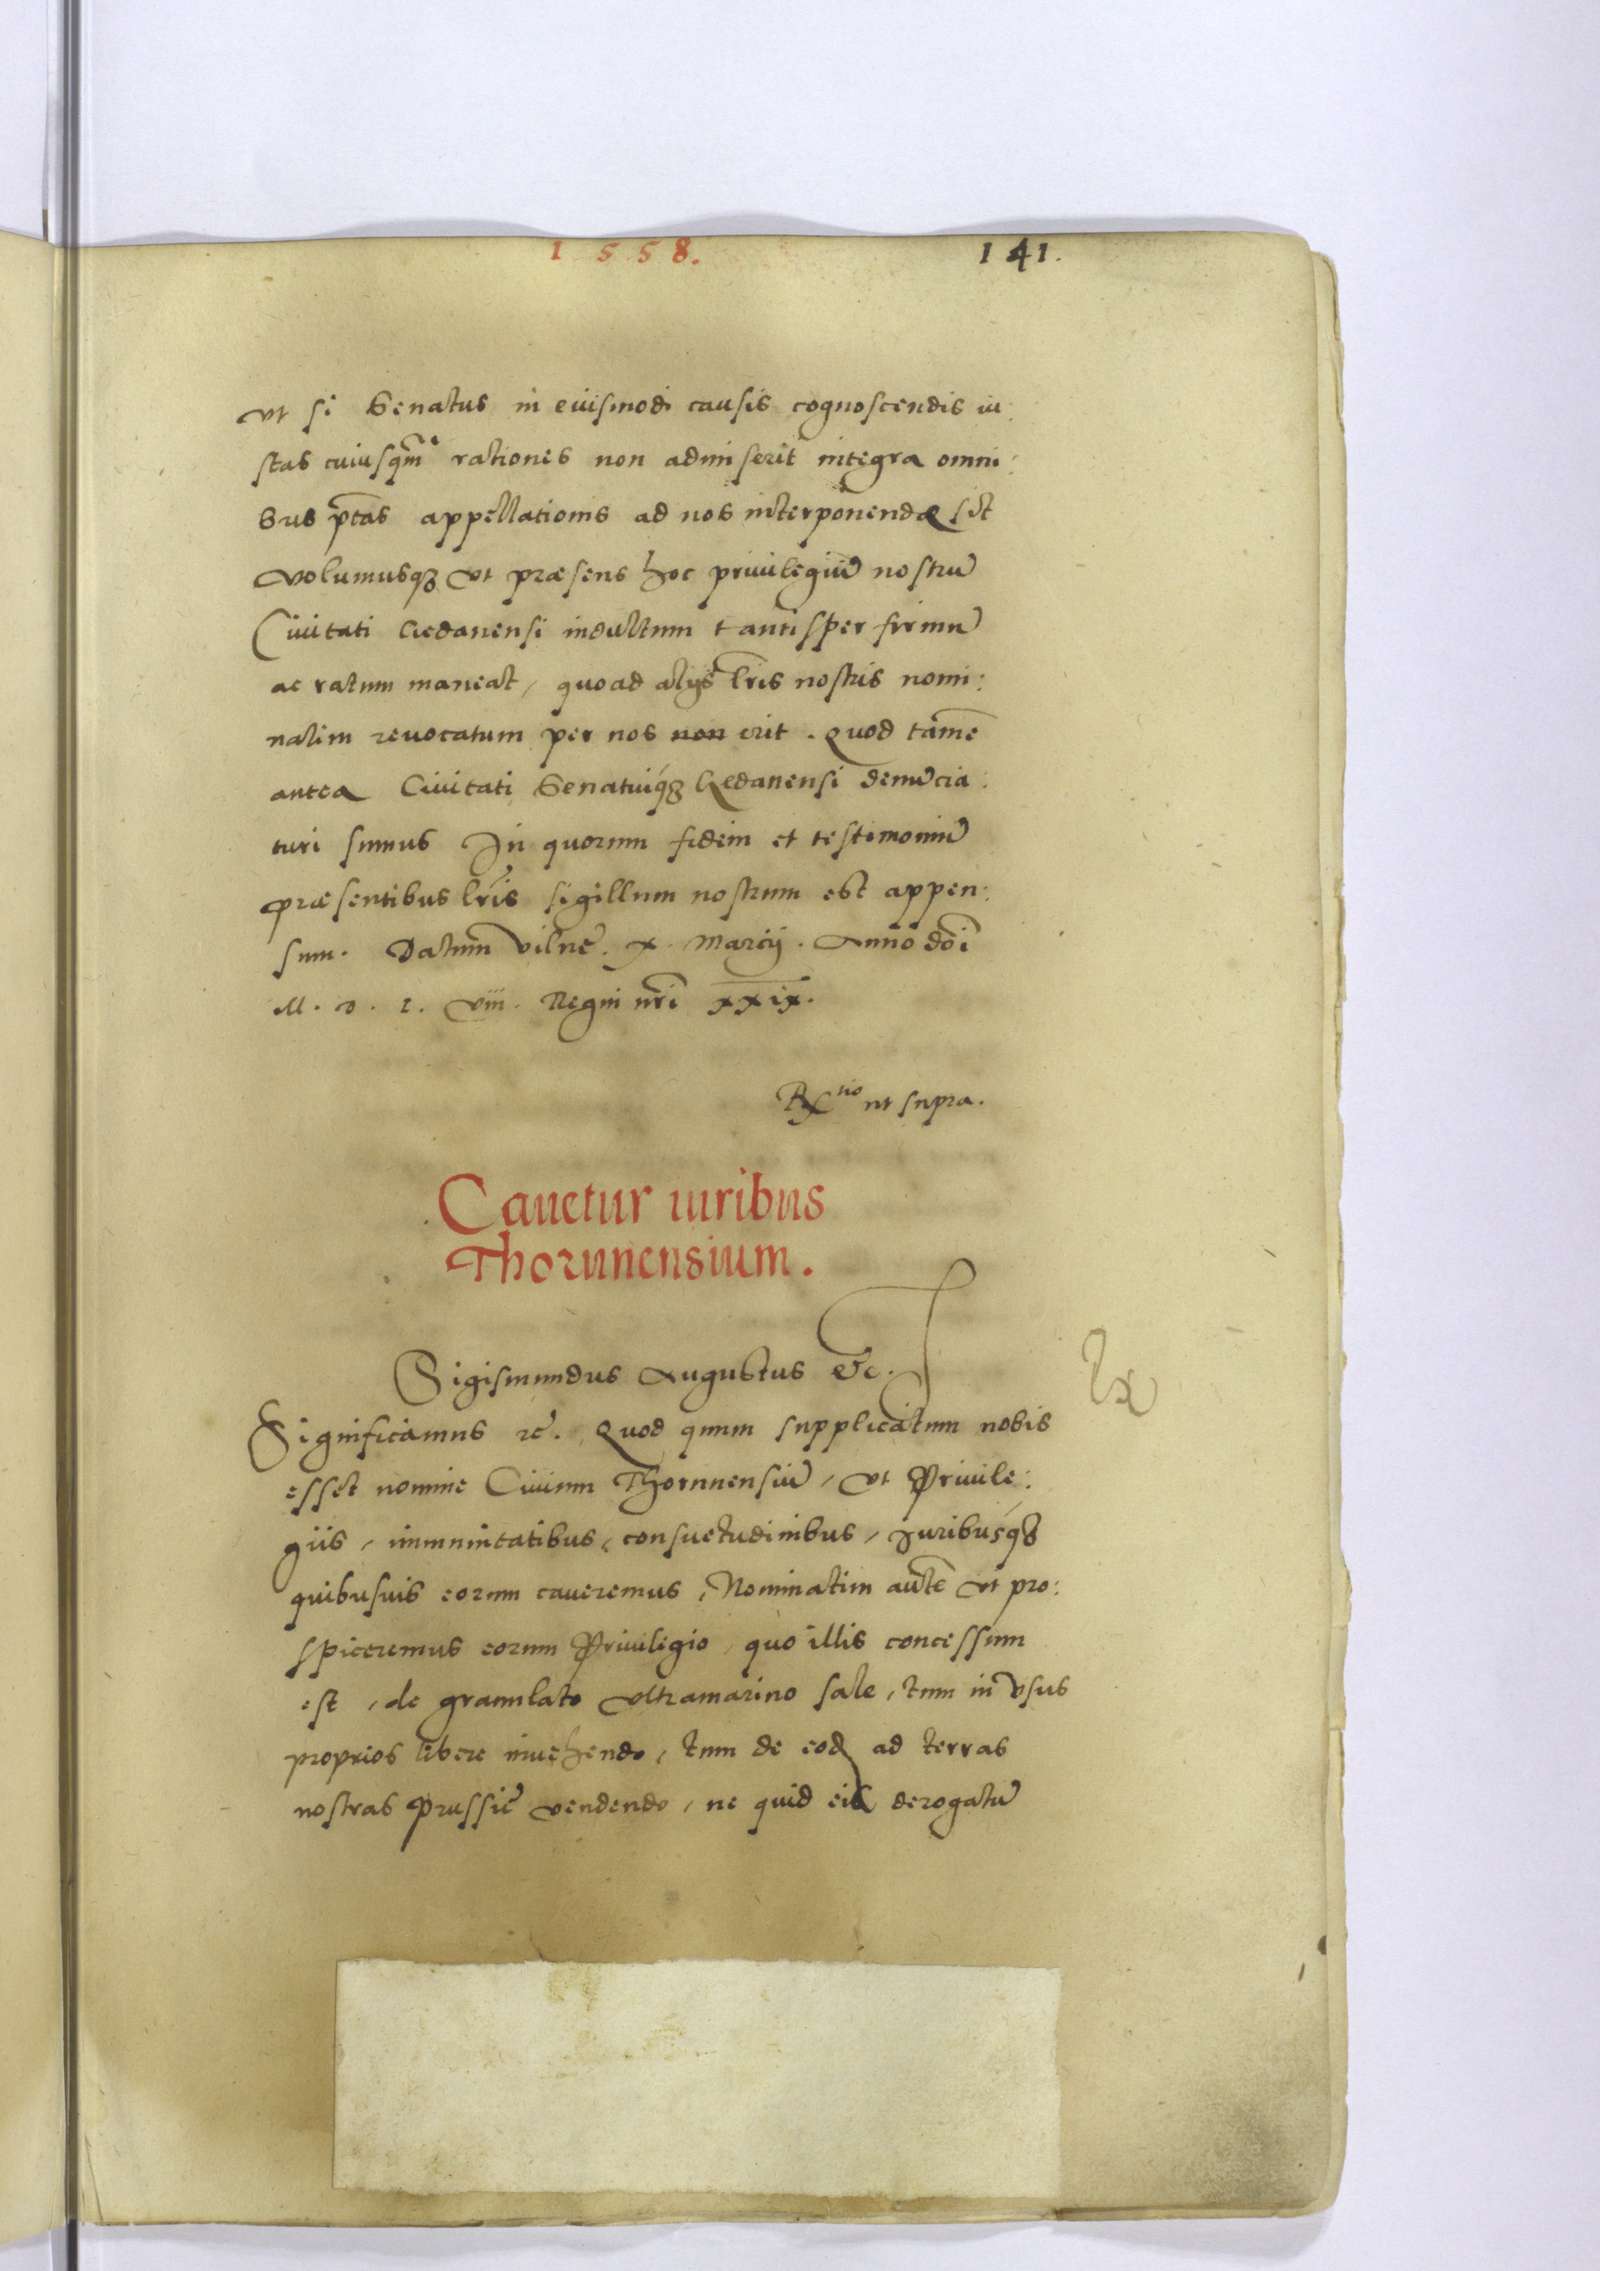 1558.
141.
vt si Senatus in eiusmodi causis cognoscendis iu:
stas cuiusqm̃ rationes non admiserit integra omni:
bus ptãs appellationis ad nos interponendæ sit
volumusq₃ vt præsens hoc priuilegiũ nostrũ
Ciuitati Gedanensi indultum tantisper firmũ
ac ratum maneat, quoad alijs lr̃is nostris nomi:
natim reuocatum per nos non erit. Quod tamẽ
antea Ciuitati Senatuiq₃ Gedanensi denũcia:
turi sumus In quorum fidem et testimoniũ
præsentibus lr̃is sigillum nostrum est appen:
sum. Datum Vilnę. x. Marcij. Anno dõi
M. D. L. viii. Regni nr̃i xxix.
Rtio ut supra.
Cauetur iuribus
Thorunensium.
Sigismundus Augustus &c.
Significamus rc̃. Quod quum supplicatum nobis
esset nomine Ciuium Thorunensiũ, vt Priuile:
giis, immunitatibus, consuetudinibus, Juribusq₃
quibusuis eorum caueremus, Nominatim autẽ vt pro:
spiceremus eorum Priuilegio, quo illis concessum
est, de granulato vltramarino sale, tum in vsus
proprios libere inuehendo, tum de eod ad terras
nostras Prussię vendendo, ne quid eis derogatũ